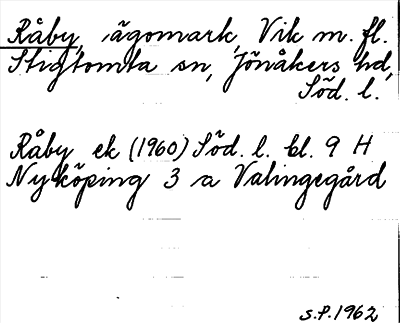 Råby, ägomark, Vik m. fl.
Stigtomta sn, Jönåkers hd,
Söd. l.
Råby ek (1960) Söd. l. bl. 9 H
Nyköping 3 a Valingegård
S.P. 1962